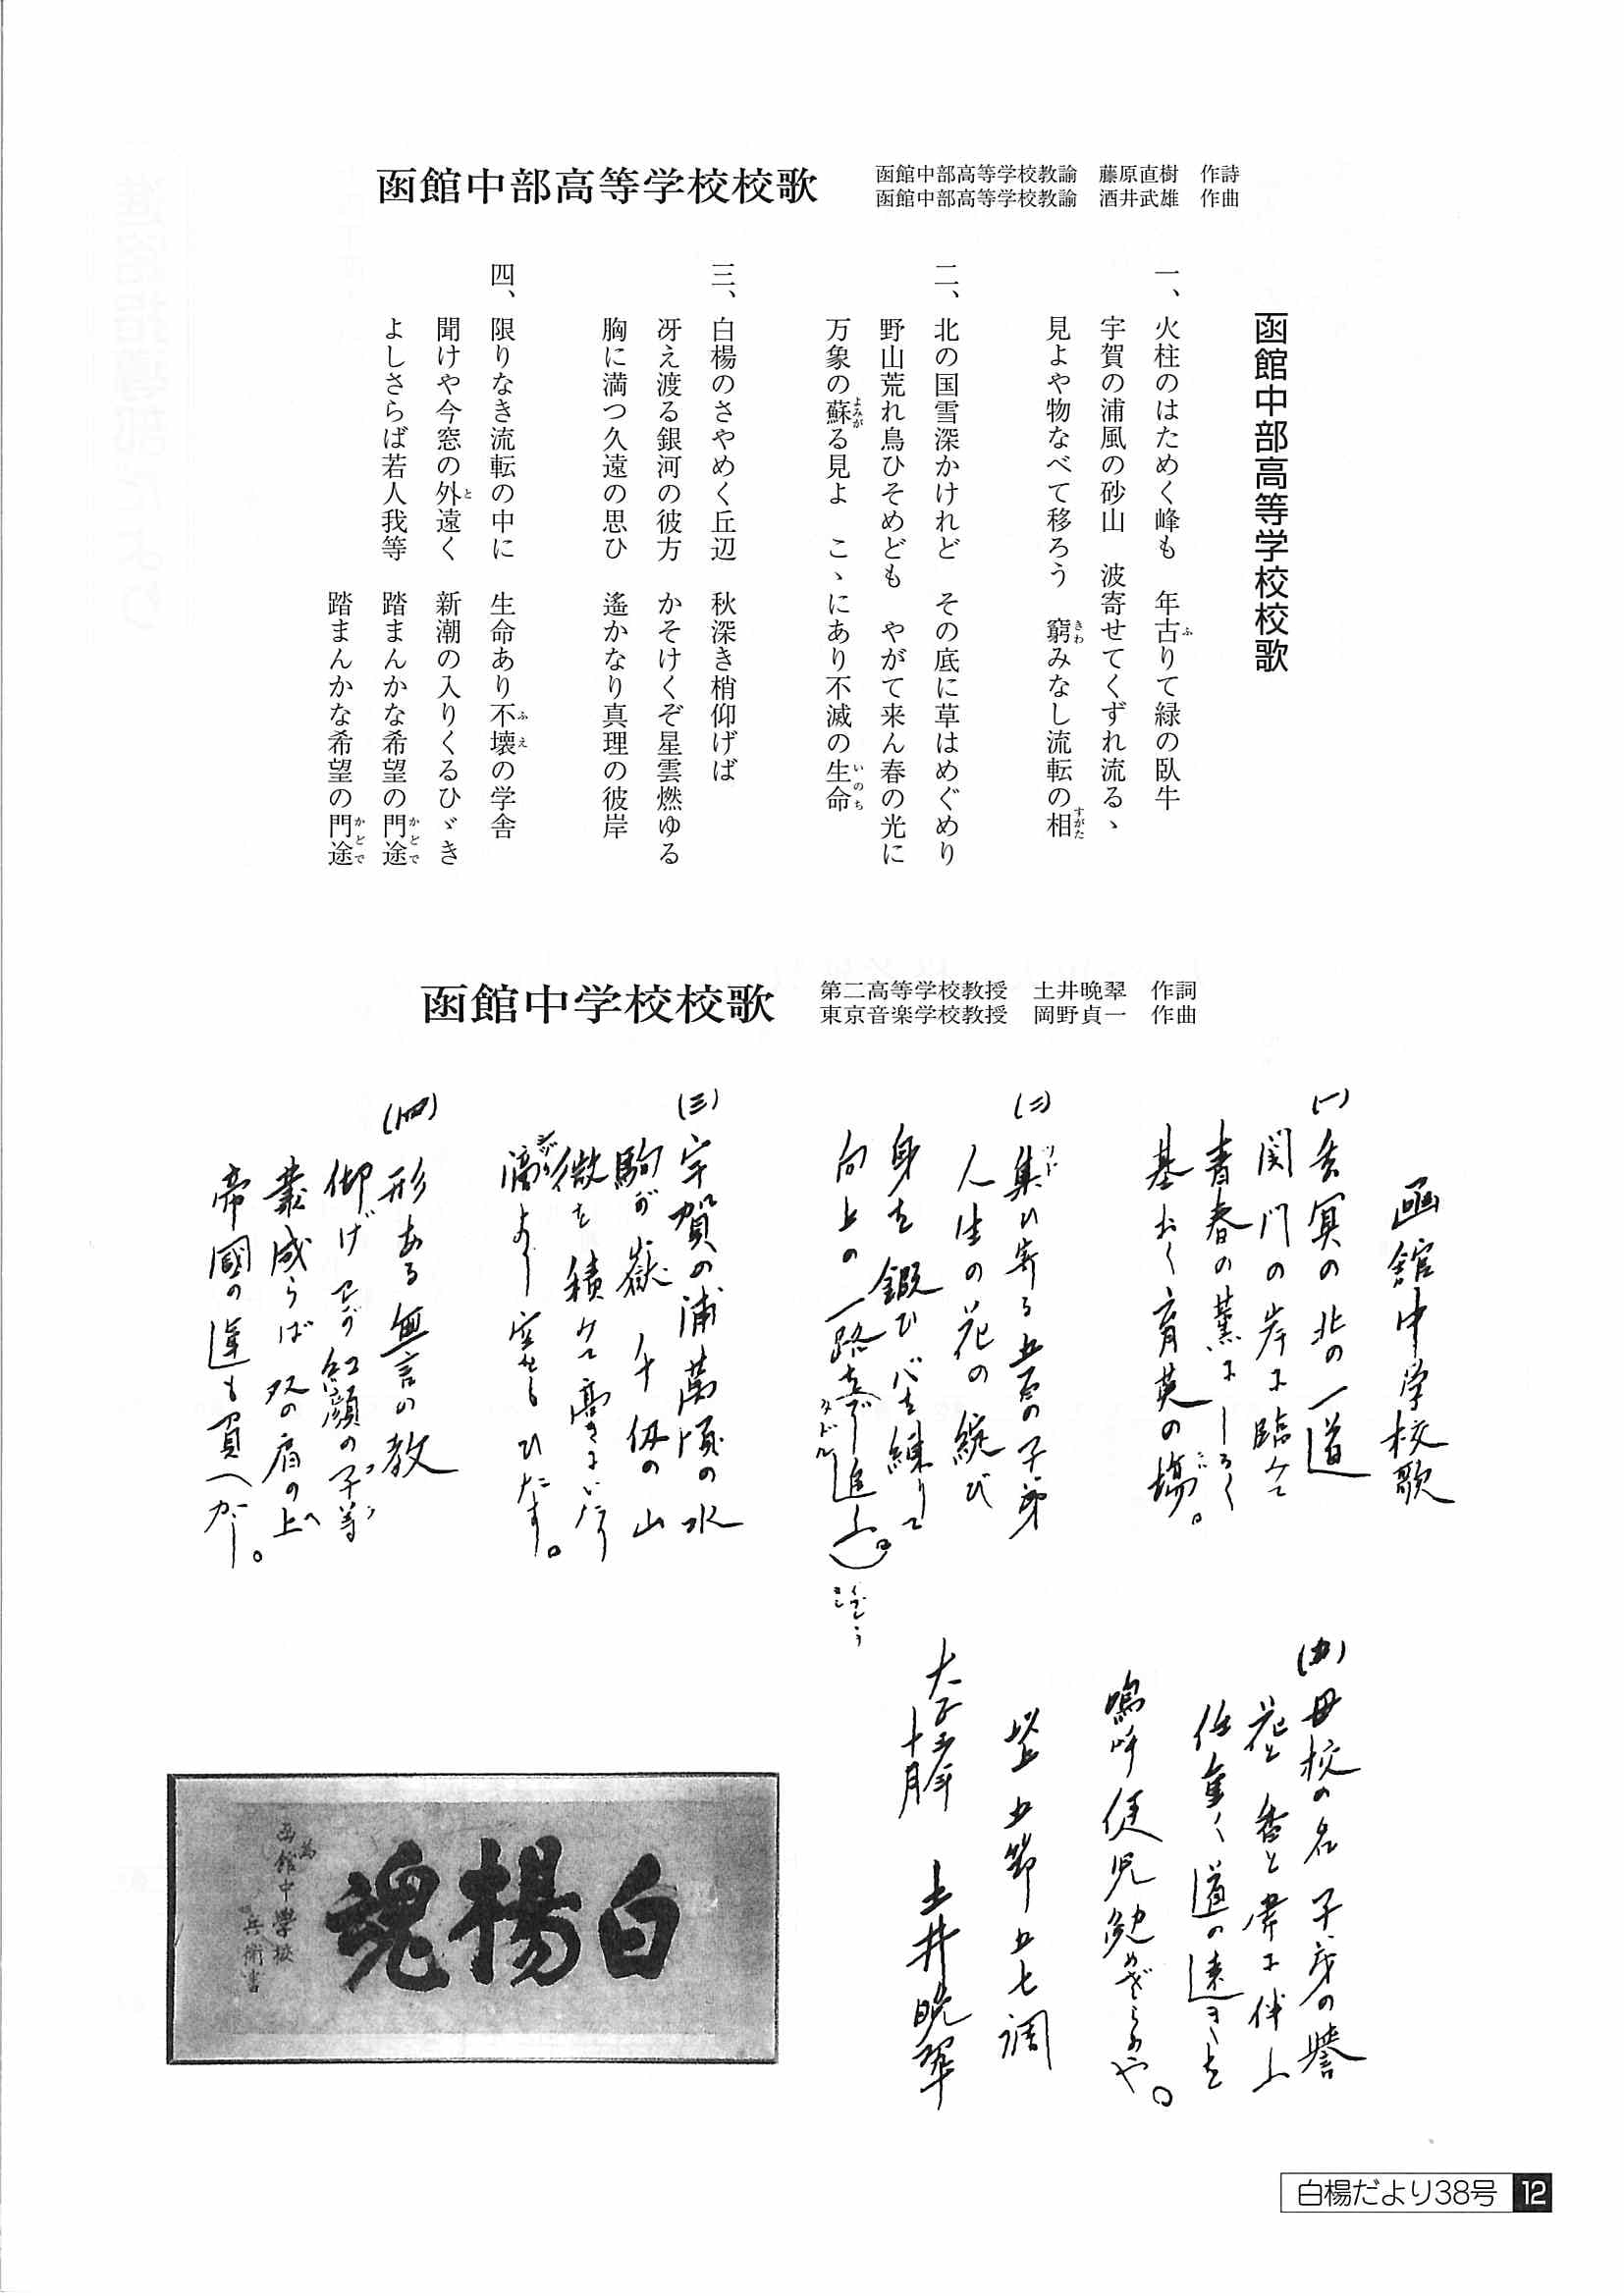 函館中部高等学校校歌
函館中部高等学校教諭　藤原直樹　作詩
函館中部高等学校教諭　酒井武雄　作曲
函館中部高等学校校歌
一、火柱のはためく峰も　年古りて緑の臥牛
ふ
宇賀の浦風の砂山　波寄せてくずれ流るゝ
見よや物なべて移ろう　窮みなし流転の相
きわ
すがた
二、北の国雪深かけれど　その底に草はめぐめり
野山荒れ鳥ひそめども　やがて来ん春の光に
万象の蘇る見よ　こゝにあり不滅の生命
よみが
いのち
三、白楊のさやめく丘辺　秋深き梢仰げば
冴え渡る銀河の彼方　かそけくぞ星雲燃ゆる
胸に満つ久遠の思ひ　遙かなり真理の彼岸
四、限りなき流転の中に　生命あり不壊の学舎
ふえ
聞けや今窓の外遠く　新潮の入りくるひゞき
と
よしさらば若人我等　踏まんかな希望の門途
かどで
踏まんかな希望の門途
かどで
函館中学校校歌
第二高等学校教授　土井晩翠　作詞
東京音楽学校教授　岡野貞一　作曲
函館中学校歌
(一)
冥の北の一道
関門の岸に臨みて
青春の薫にしるく
基おく育英の場。
には
(二)集ひ寄る五百の子弟
ツド
人生の花の綻び
身を鍛ひ心を練りて
向上の一路
進ふ。
タドル
(三)宇賀の浦萬頃の水
駒が嶽　千仭の山
微を積みて高きにいたり
滴より空をもひたす。
(四)形ある無言の教
仰げわが紅顔の子等
業成らば双の肩の上へ
帝國の運も負へかし。
(五)母校の名　子弟の譽
花と香と常に伴ふ
任重く道の遠きを
嗚呼健児勉めざらめや。
以上　五節　五七調
大正五年
十月　土井晩翠
白楊魂
為
函館中學校
兵衛書
白楊だより38号　12